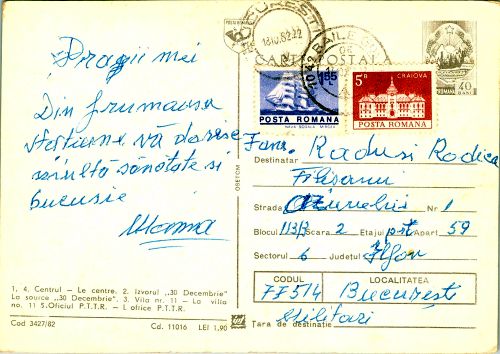 CARTE POSTALA
BUCURESTI
18.10.82.22
POSTA ROMANA
NAVA SCOALA MIRCEA
5B
CRAIOVA
POSTA ROMANA
ROMANA
40
BANI
Dragii mei
Din frumoasa
stațiune vă doresc
multă sănătate si
bucurie
Mama
Fam. Radu si Rodica
Destinatar
Strada Nr. 1
Blocul 113/3 Scara 2 Etajul Apart. 59
Sectorul 6 Județul Ilfov
CODUL
LOCALITATEA
77514 București
Militari
Țara de destinație
1. 4. Centrul — Le centre. 2. Izvorul „30 Decembrie"
La source „30 Decembrie". 3. Vila nr. 11 — La villa
no. 11 5. Oficiul P.T.T.R. — L'office P.T.T.R.
Cod 3427/82
Cd. 11016 LEI 1,90